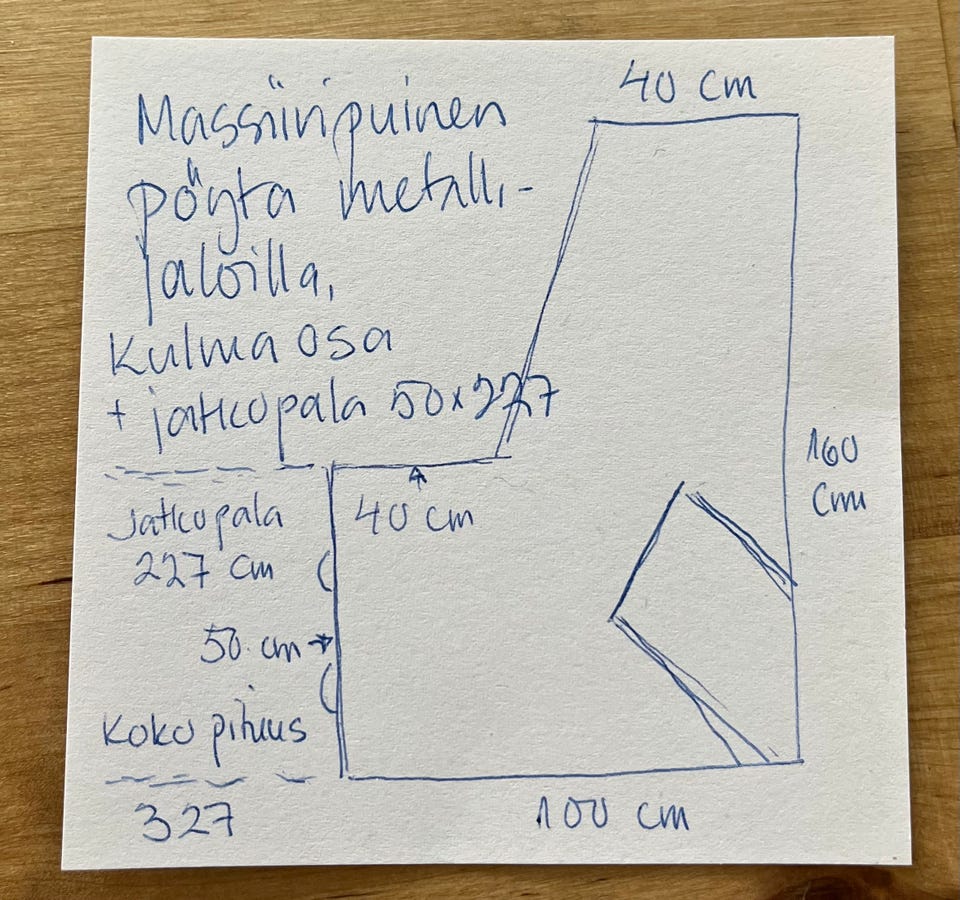 Massiiripuinen
pöytä metalli-
jaloilla,
Kulma osa
+ jatkopala 50x227
40 cm
160
cm
40 cm
Jatkopala
227 cm
50 cm →
Koko pituus
327
100 cm